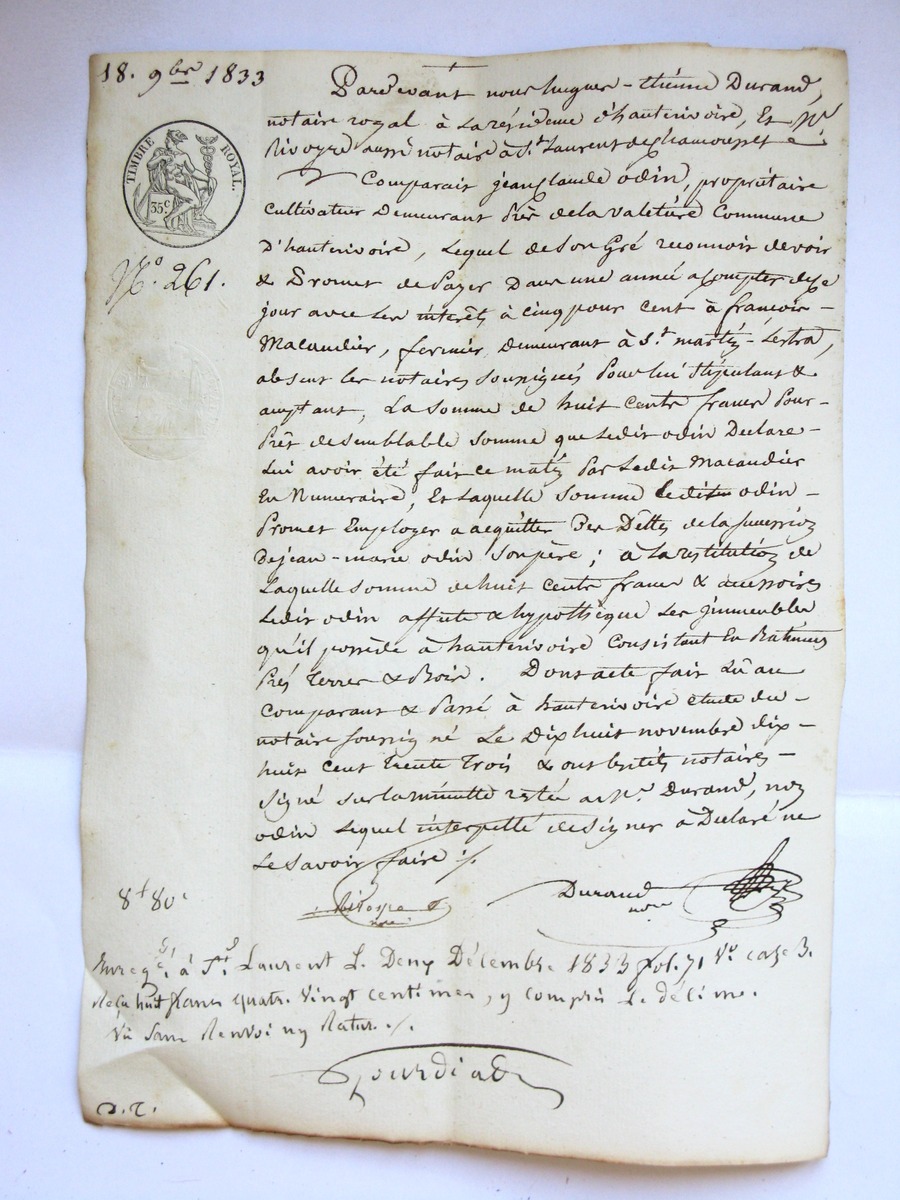 18. 9bre 1833
TIMBRE ROYAL.
35c.
No. 261.
Pardevant nous hugues-étienne Durand,
notaire royal à la résidence d'hauterivoire, Et Me
Rivoyre aussi notaire à St Laurent de Chamousset
Comparait jean Claude odin, propriétaire
Cultivateur Demeurant Près de la Valetiere Commune
D'hauterivoire, Lequel de Son Gré reconnoit devoir
& Promet de Payer Dans une année a Compter de Ce
jour avec Les interêts à Cinq pour Cent à françois-
Macaudier, fermier, demeurant à St martin-Lestra,
absent les notaires Soussignés Pour lui Stipulant &
acceptant, La Somme de huit Cents francs Pour-
Prêt de Semblable Somme que Ledit odin Déclare-
Lui avoir été fait ce matin Par Ledit Macaudier
En Numeraire, Et Laquelle Somme Ledit odin-
Promet Employer a acquitter Des Dettes de la Succession
De jean-marie odin Son père; à La restitution de
Laquelle Somme de huit Cents francs & accessoires
Ledit odin affecte & hypothèque Les jmmeubles
qu'il possède à hauterivoire Consistant En Batimens
Prés Terres & Bois. Dont acte fait Lû au
Comparant & Passé à hauterivoire étude du-
notaire Soussigné Le Dix huit novembre dix-
huit Cent Trente Trois & ont Lesdits notaires-
Signé Sur la minutte restée a Me. Durand, non
odin Lequel interpellé de Signer à Déclaré ne
Le Savoir faire ./.
8f 80c
Rivoyre
nre
Durand
nre
Enregé. à St. Laurent L. Deux Décembre 1833 fol. 71 Vo case 3.
Reçu huit francs quatre Vingt centimes, y compris Le décime.
Vu Sans Renvoi ny Rature ./.
D.T.